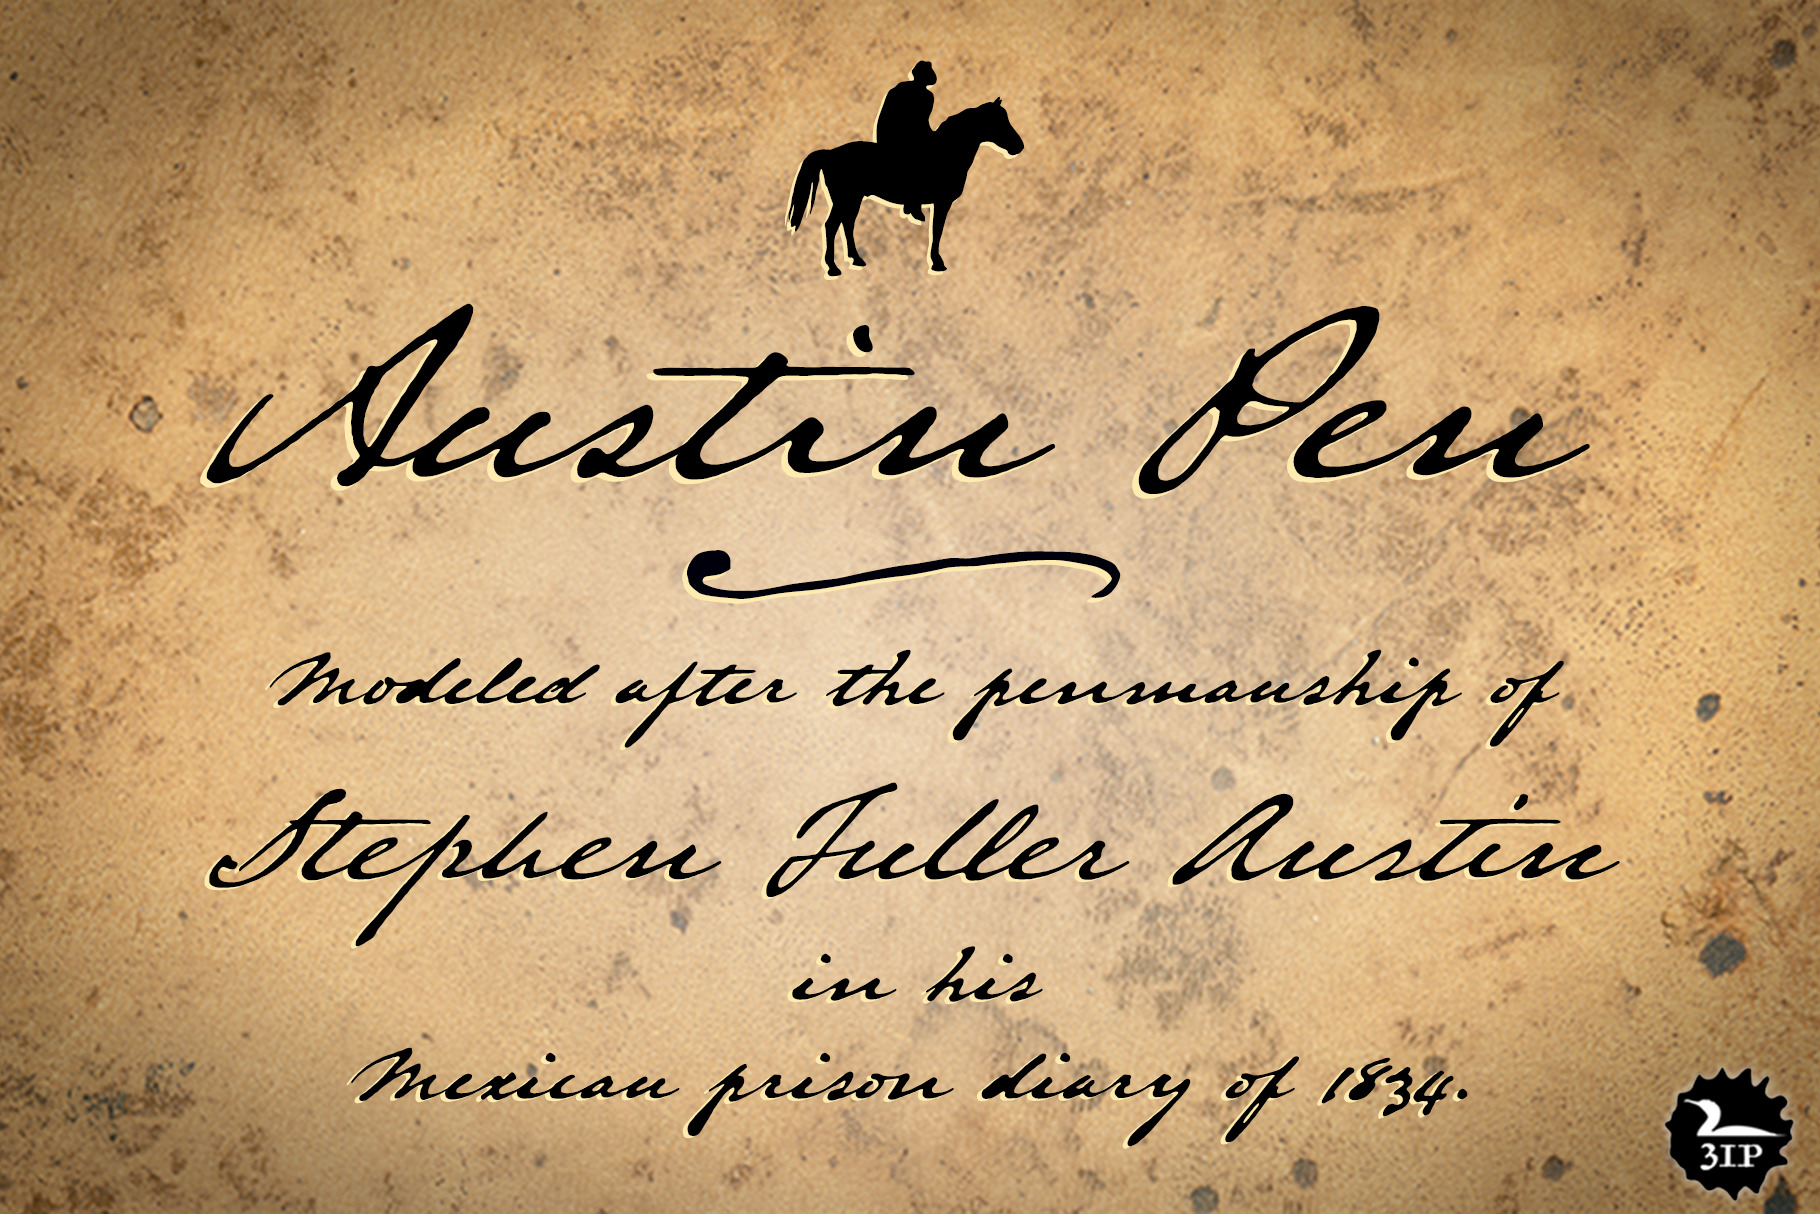 Austin Pen
Modeled after the penmanship of
Stephen Fuller Austin
in his
Mexican prison diary of 1834.
3IP